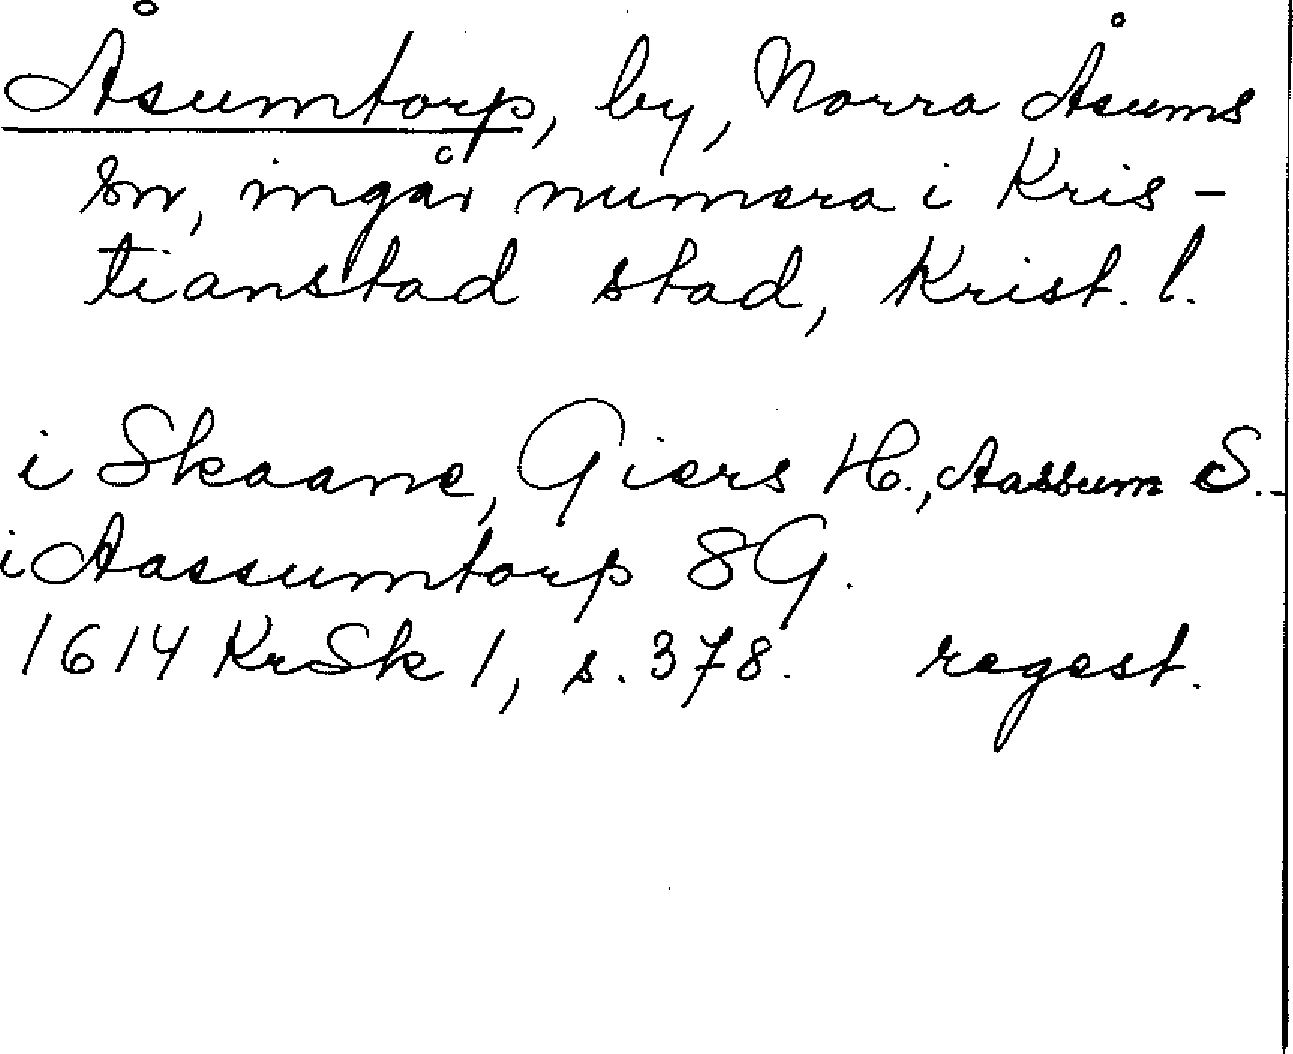 Åsumtorp, by, Norra Åsums
sn, ingår numera i Kris-
tianstad stad, Krist. l.
i Skaane, Giers H., Aassum S. -
i Aassumtorp 8 G.
1614 KrSk 1, s. 378. regest.